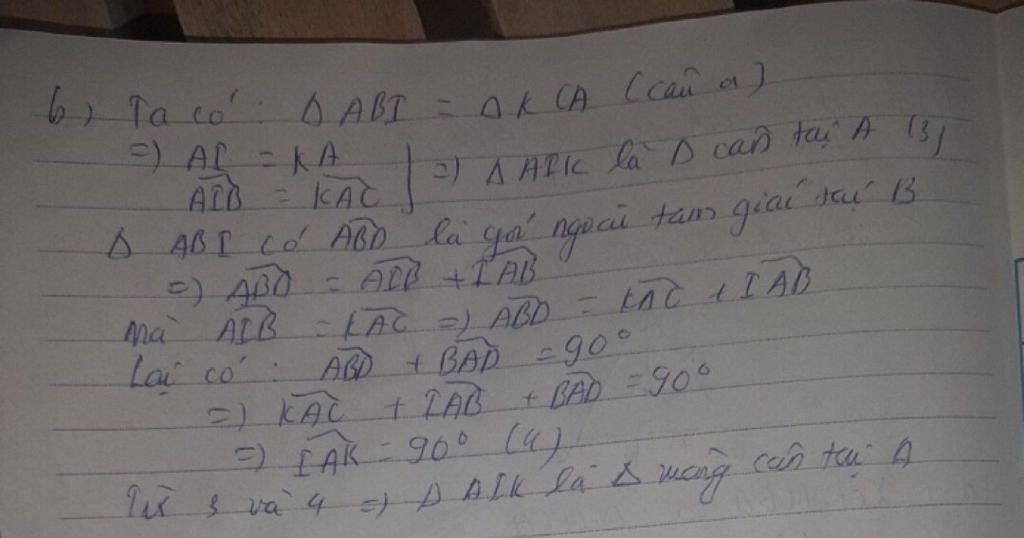 b) Ta có: Δ ABI = Δ KCA (câu a)
=) AI = KA
AIB = KAC } =) Δ AIK là Δ cân tại A (3)
Δ ABI có ABD là góc ngoài tam giác tại B
=) ABD = AIB + IAB
mà AIB = KAC =) ABD = KAC + IAB
Lại có: ABD + BAD = 90°
=) KAC + IAB + BAD = 90°
=) IAK = 90° (4)
Từ 3 và 4 =) Δ AIK là Δ vuông cân tại A